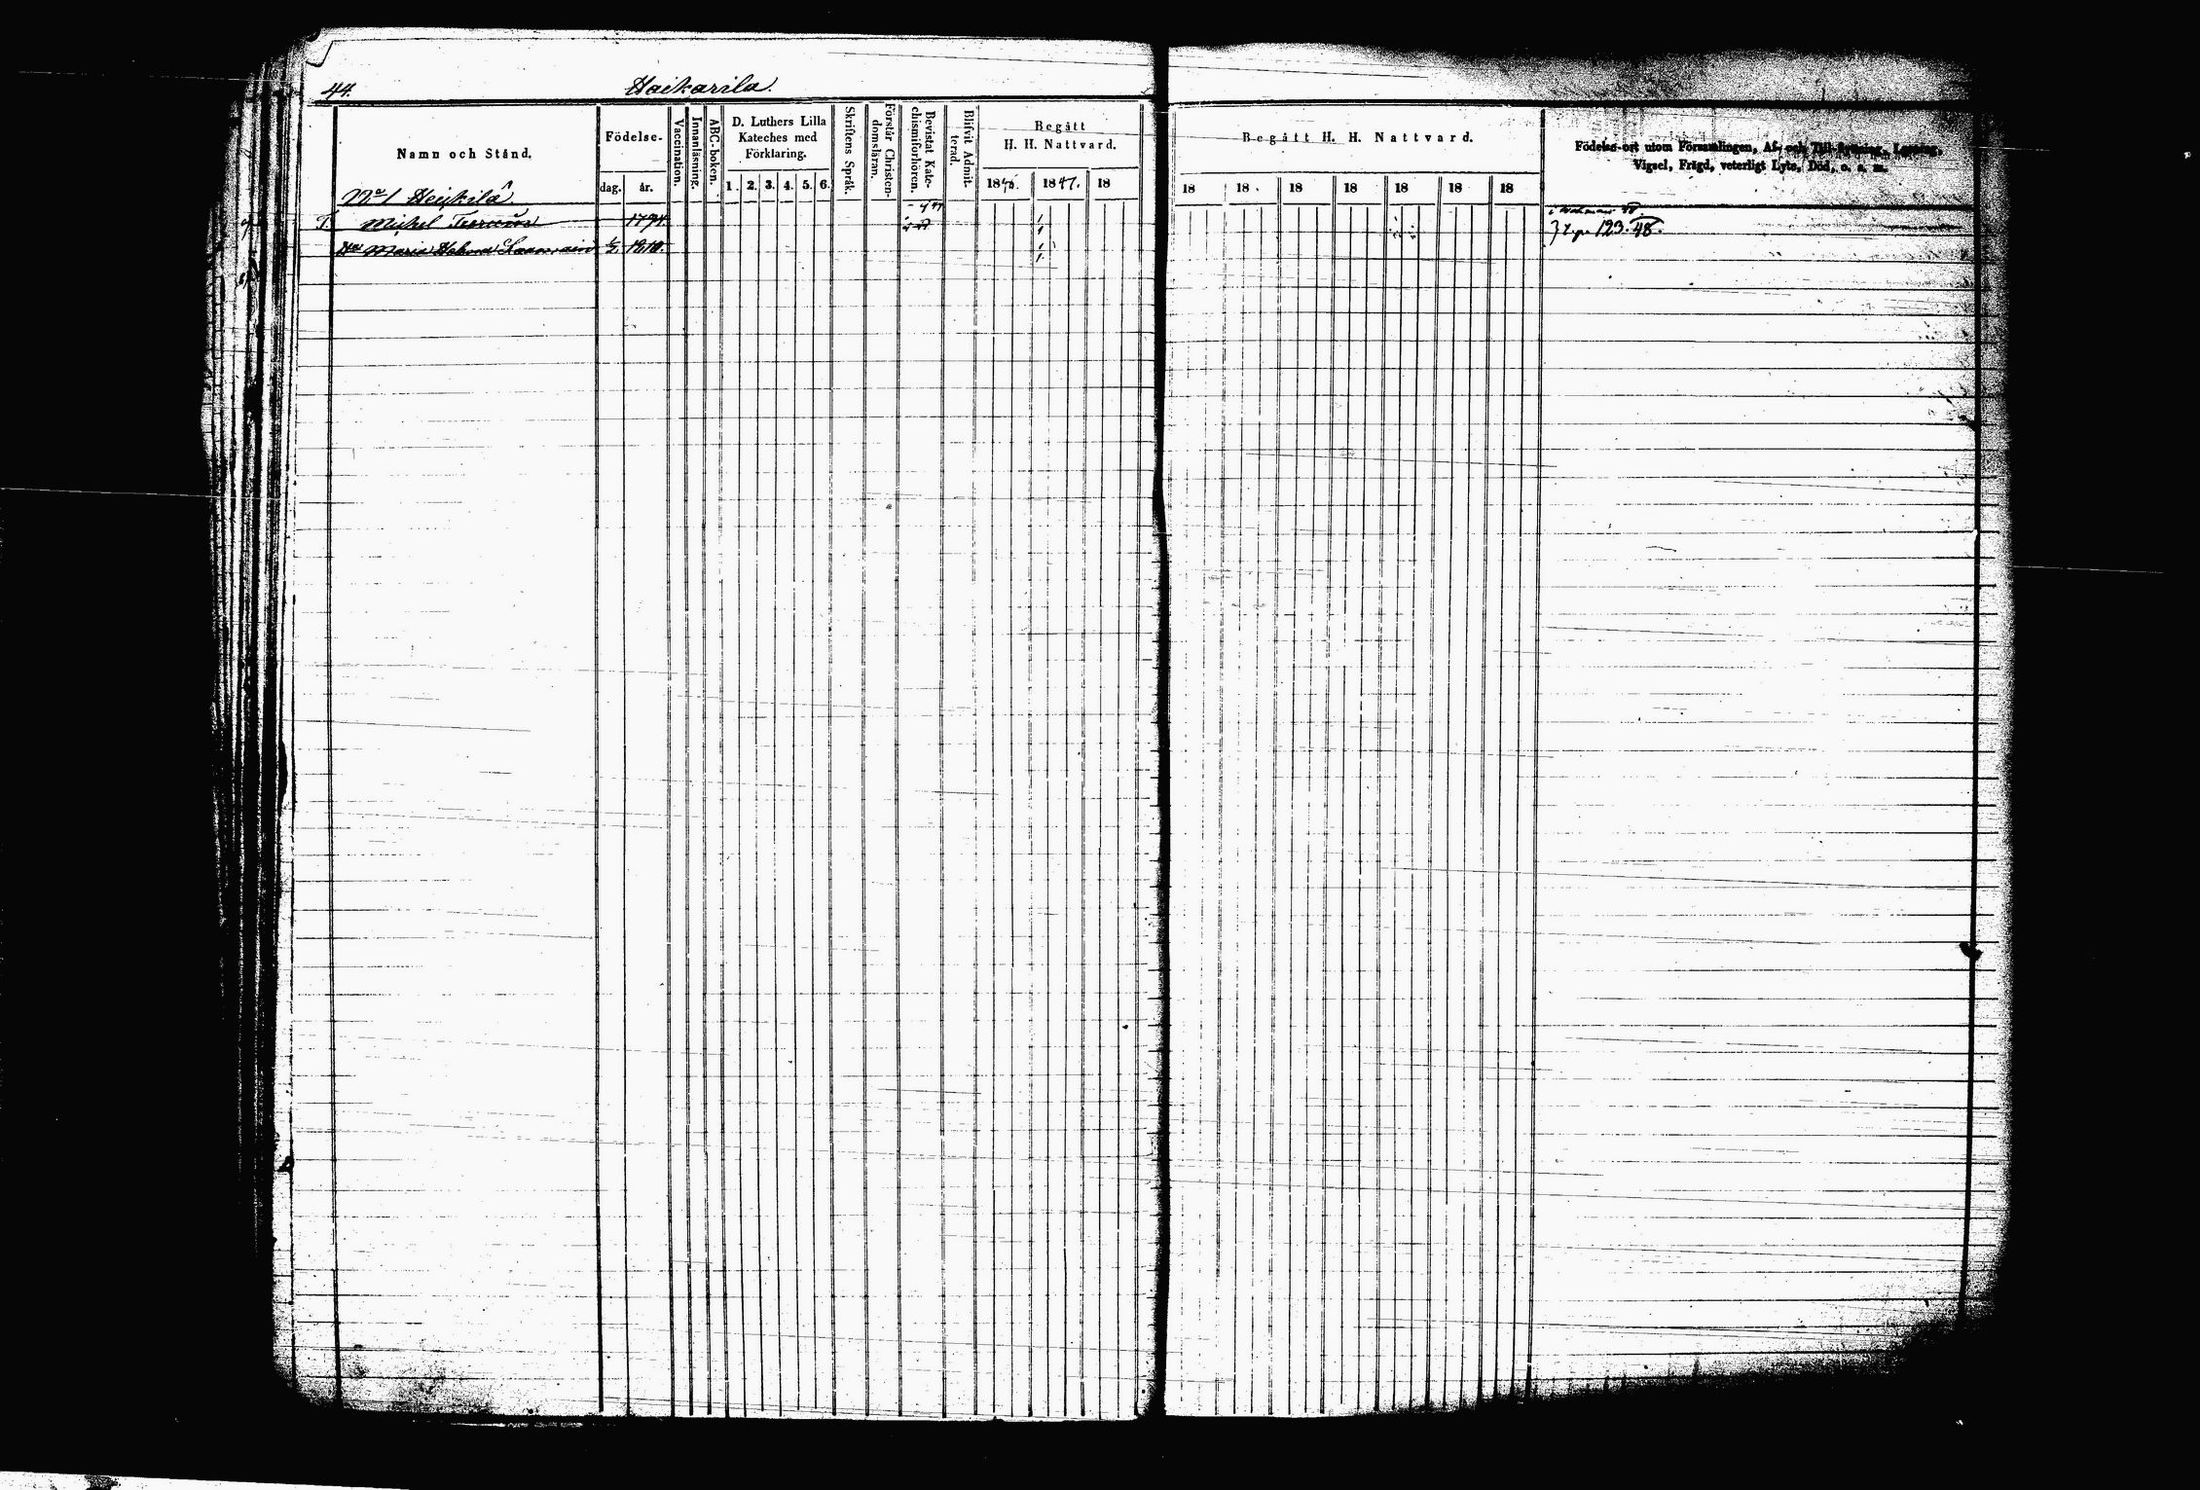 44.
Haikarila.
Namn och Stånd.
Födelse-
dag. år.
Vaccination.
Innanläsning.
ABC-boken.
D. Luthers Lilla
Kateches med
Förklaring.
1. 2. 3. 4. 5. 6.
Skriftens Språk.
Förstår Christen-
domsläran.
Bevistat Kate-
chismiförhören.
Blifvit Admit-
terad.
Begått
H. H. Nattvard.
18 1847. 18
Begått H. H. Nattvard.
18 18 18 18 18 18 18
Födelse-ort utom Församlingen, Af- och Till-flyttning, Lysning,
Vigsel, Frägd, veterligt Lyte, Död, o. s. m.
No 1 Heikilä
T. Michel 1794.
Maria 1810.
123. 48.